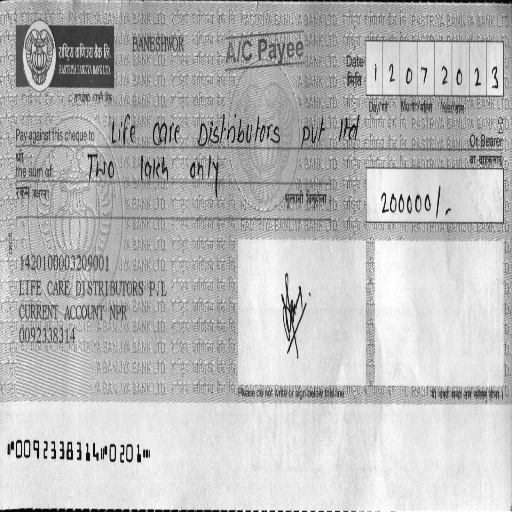 राष्ट्रिय वाणिज्य बैंक लि.
RASTRIYA BANIJYA BANK LTD.
BANESHWOR
A/C Payee
Date
मिति
1 2 0 7 2 0 2 3
Pay against this cheque to Life care Distributors pvt ltd
Or Bearer
श्री
the sum of Two lakh only
200000/-
1420100003209001
LIFE CARE DISTRIBUTORS P.L
CURRENT ACCOUNT NPR
0092338314
Please do not write or sign below this line
⑈0092338314⑈0201⑈